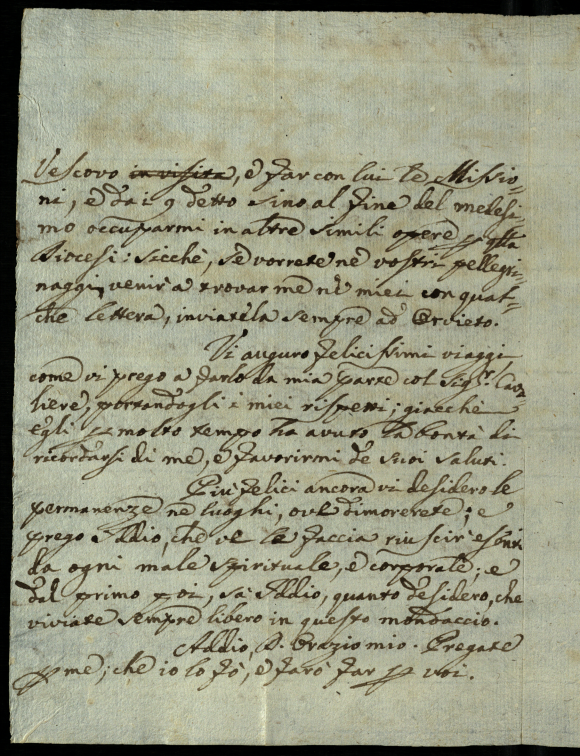 Vescovo in visita, e far con lui le Missio=
ni, e dai 9 detto sino al fine del medesi=
mo occuparmi in altre simili opere p qta
Diocesi: sicchè, se vorrete ne' vostri pellegri=
naggi, venir' a trovar me ne' miei con qual=
che lettera, inviatela sempre ad Orvieto.
Vi auguro felicissimi viaggi
come vi prego a farlo da mia parte col Sigr. Cava=
liere, portandogli i miei rispetti; giacchè
egli p molto tempo ha avuto la bontà di
ricordarsi di me, e favorirmi de' suoi saluti.
Più felici ancora vi desidero le
permanenze ne' luoghi, ove dimorerete; e
prego Iddio, che ve le faccia riuscir' esenti
da ogni male spirituale, e corporale; e
dal primo poi, sa Iddio, quanto desidero, che
viviate sempre libero in questo mondaccio.
Addio, D. Orazio mio. Pregate
p me; che io lo fò, e farò far p voi.